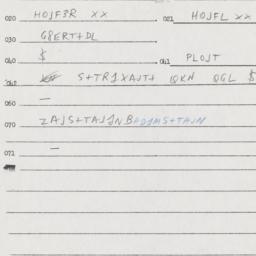 020 HOJF3R XX 021 HOJFL XX
030 G8ERT+DL
040 $ 041 PLOJT
S+TR1XAJT+ QKN QGL $
060 —
070 ZAJS+TAJJNB
071 —